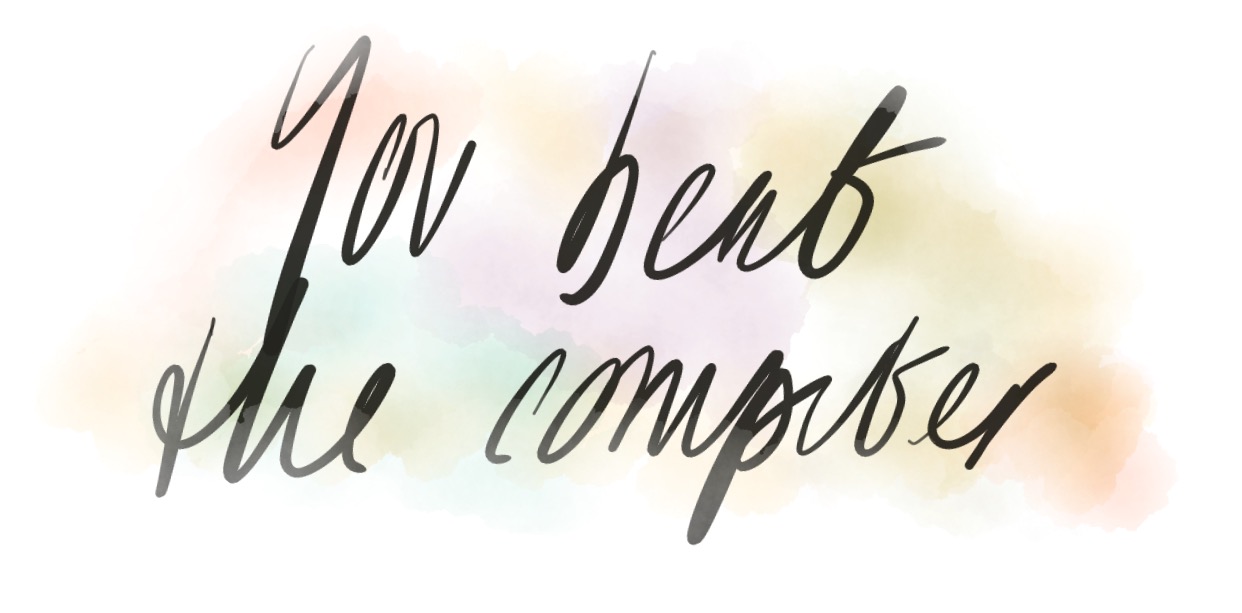 You beat
the computer